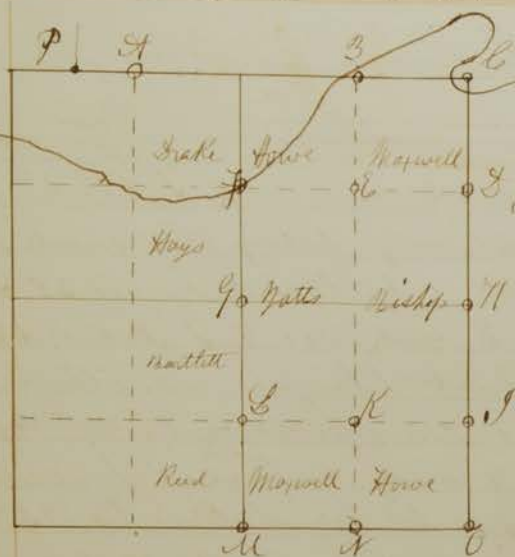 P A B C
Drake Howe Maxwell
F E D
Hays
G Notts Bishop H
Bartlett
L K J
Reed Maxwell Howe
M N O